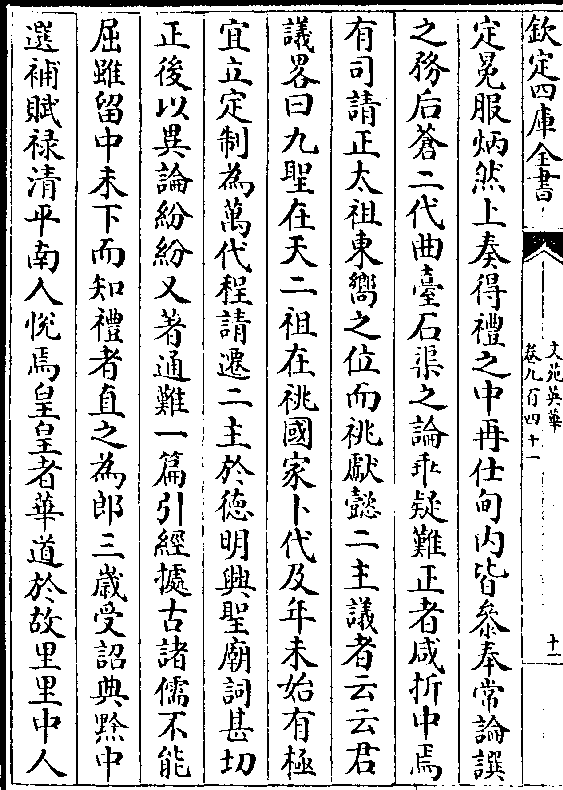 欽定四庫全書
文苑英華
卷九百四十一
十二
定冕服炳然上奏得禮之中再仕甸内皆叅奉常論譔
之務后蒼二代曲臺石渠之論乖疑難正者咸折中焉
有司請正太祖東嚮之位而祧獻懿二主議者云云君
議畧曰九聖在天二祖在祧國家卜代及年未始有極
宜立定制為萬代程請遷二主於德明興聖廟詞甚切
正後以異論紛紛又著通難一篇引經據古諸儒不能
屈雖留中未下而知禮者直之為郎三歲受詔典黔中
選補賦禄清平南人悅焉皇皇者華道於故里里中人